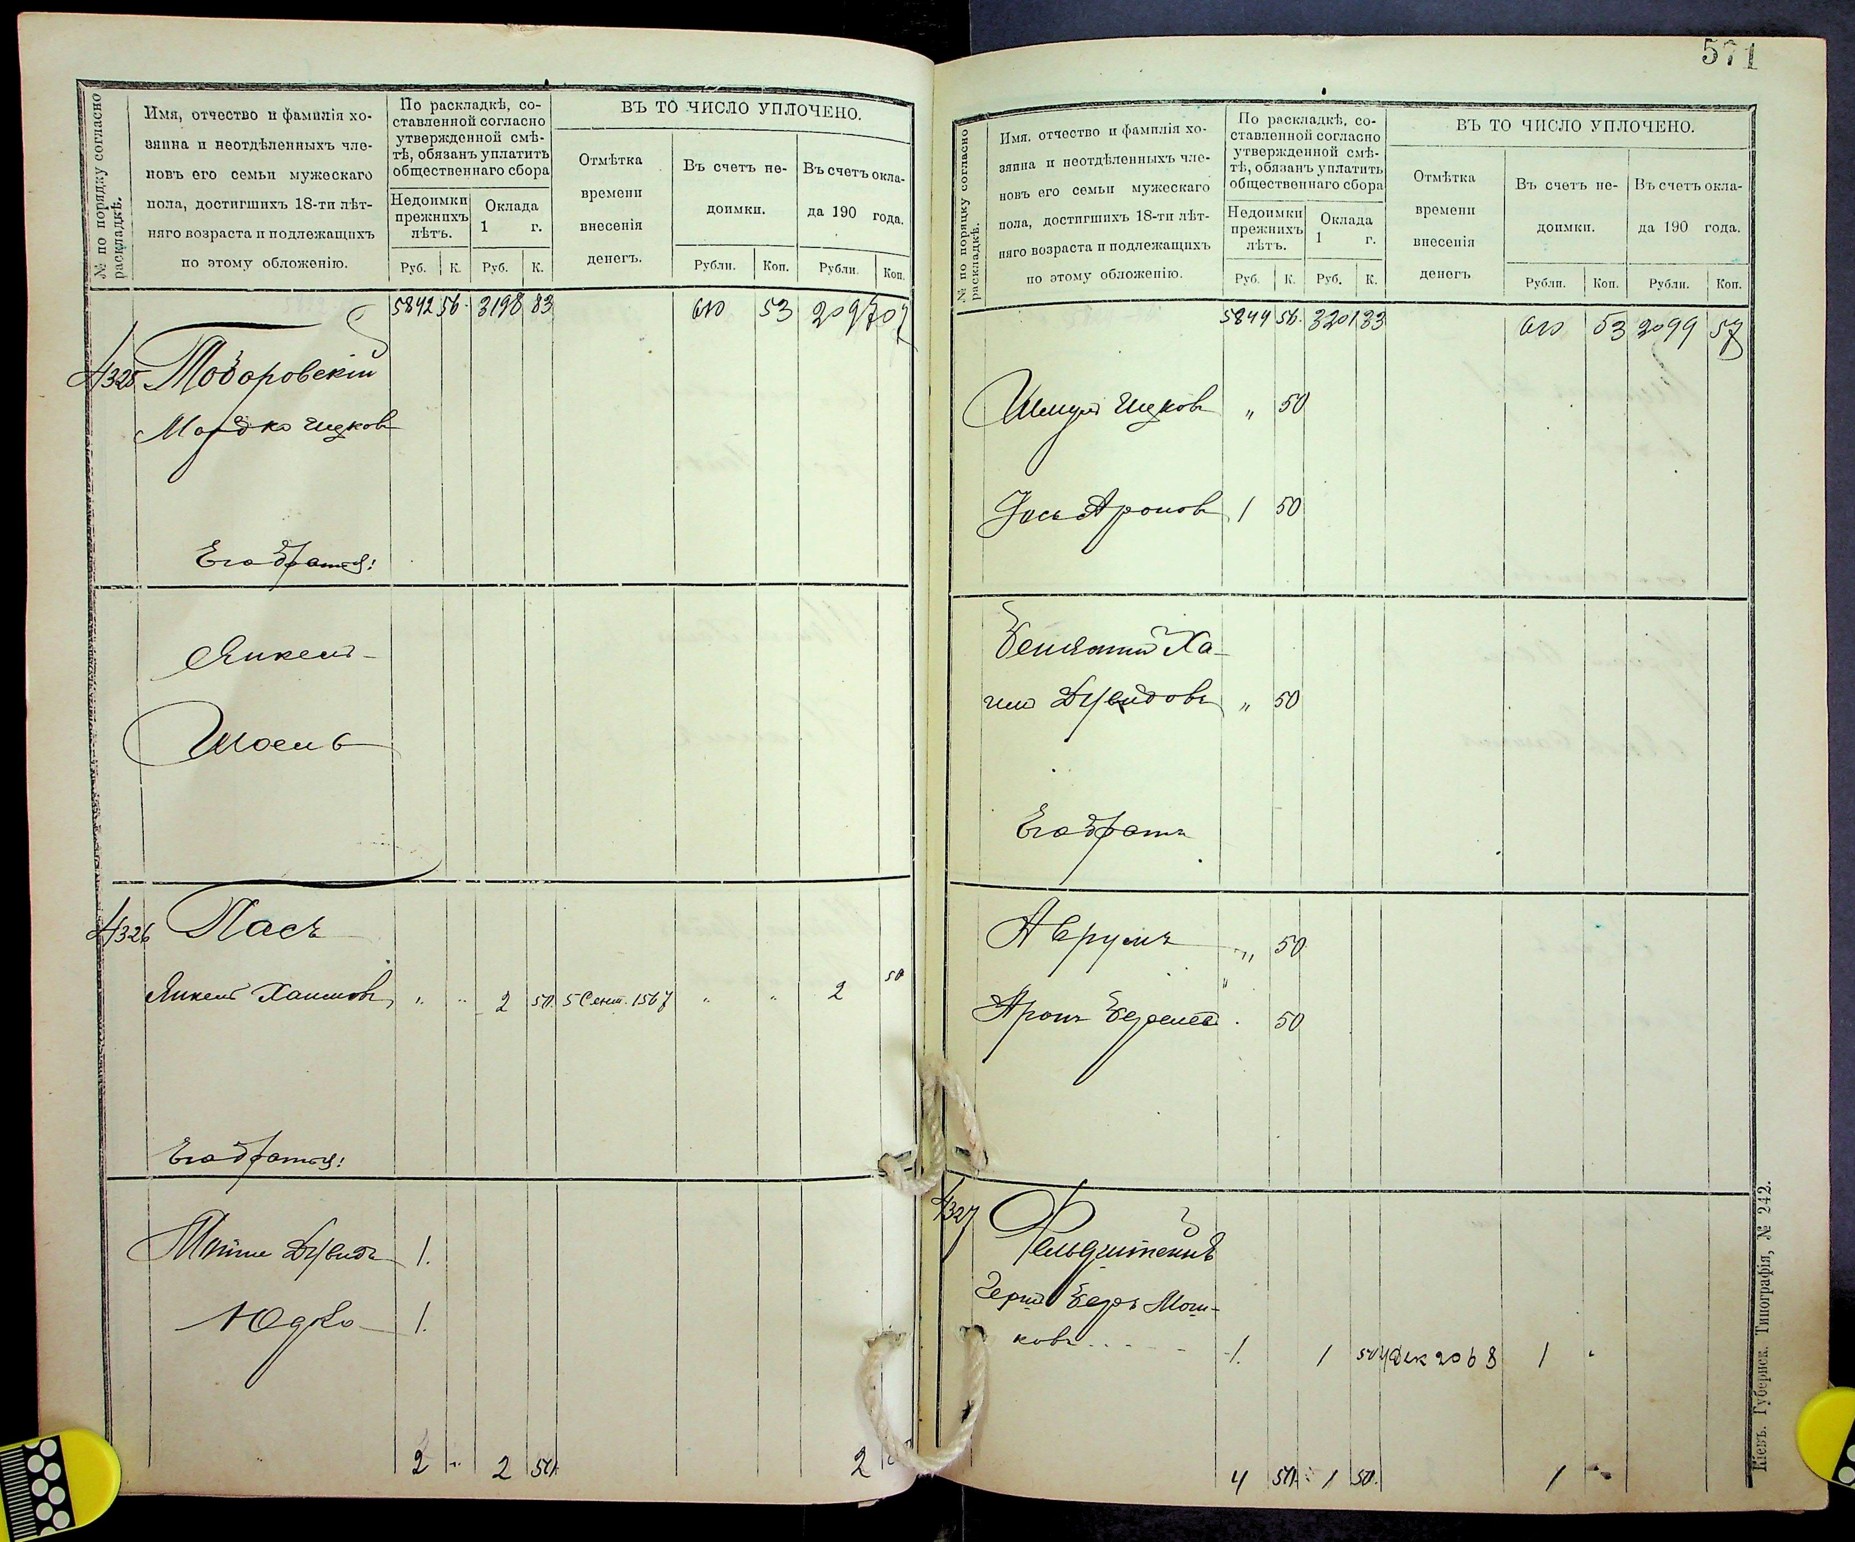 № по порядку согласно раскладкѣ.
Имя, отчество и фамилія хо-
зяина и неотдѣленныхъ чле-
новъ его семьи мужескаго
пола, достигшихъ 18-ти лѣт-
няго возраста и подлежащихъ
по этому обложенію.
По раскладкѣ, со-
ставленной согласно
утвержденной смѣ-
тѣ, обязанъ уплатить
общественнаго сбора
Недоимки
прежнихъ
лѣтъ.
Оклада
1 г.
Руб. К. Руб. К.
ВЪ ТО ЧИСЛО УПЛОЧЕНО.
Отмѣтка
времени
внесенія
денегъ.
Въ счетъ не-
доимки.
Въ счетъ окла-
да 190 года.
Рубли. Коп. Рубли. Коп.
5842 56. 3198 83 610 53 2097 07
4325 Тодоровскій
Мордко Ицков
Его братья:
Янкель
Шоель
4326 Пасъ
Янкель Хаимовъ " " 2 50. 5 Сент. 1567 " " 2 50
Его братья:
Мойше Дувидъ 1.
Юдко 1.
2 " 2 50 2 50
571
№ по порядку согласно раскладкѣ.
Имя, отчество и фамилія хо-
зяина и неотдѣленныхъ чле-
новъ его семьи мужескаго
пола, достигшихъ 18-ти лѣт-
няго возраста и подлежащихъ
по этому обложенію.
По раскладкѣ, со-
ставленной согласно
утвержденной смѣ-
тѣ, обязанъ уплатить
общественнаго сбора
Недоимки
прежнихъ
лѣтъ.
Оклада
1 г.
Руб. К. Руб. К.
ВЪ ТО ЧИСЛО УПЛОЧЕНО.
Отмѣтка
времени
внесенія
денегъ
Въ счетъ не-
доимки.
Въ счетъ окла-
да 190 года.
Рубли. Коп. Рубли. Коп.
5844 56. 3201 33 610 53 2099 57
Шмуль Ицков " 50
Іось Ароновъ 1 50
Беніамин Ха-
им Дувидовъ " 50
Его братъ
Аврумъ " 50
Аронъ Берелев " 50
4327 Фельдштейнъ
Герш Беръ Мош-
ковъ 1. 1 50 4 Дек 2068 1 "
4 50 1 50. 1 "
Кіевъ. Губернск. Типографія, № 242.